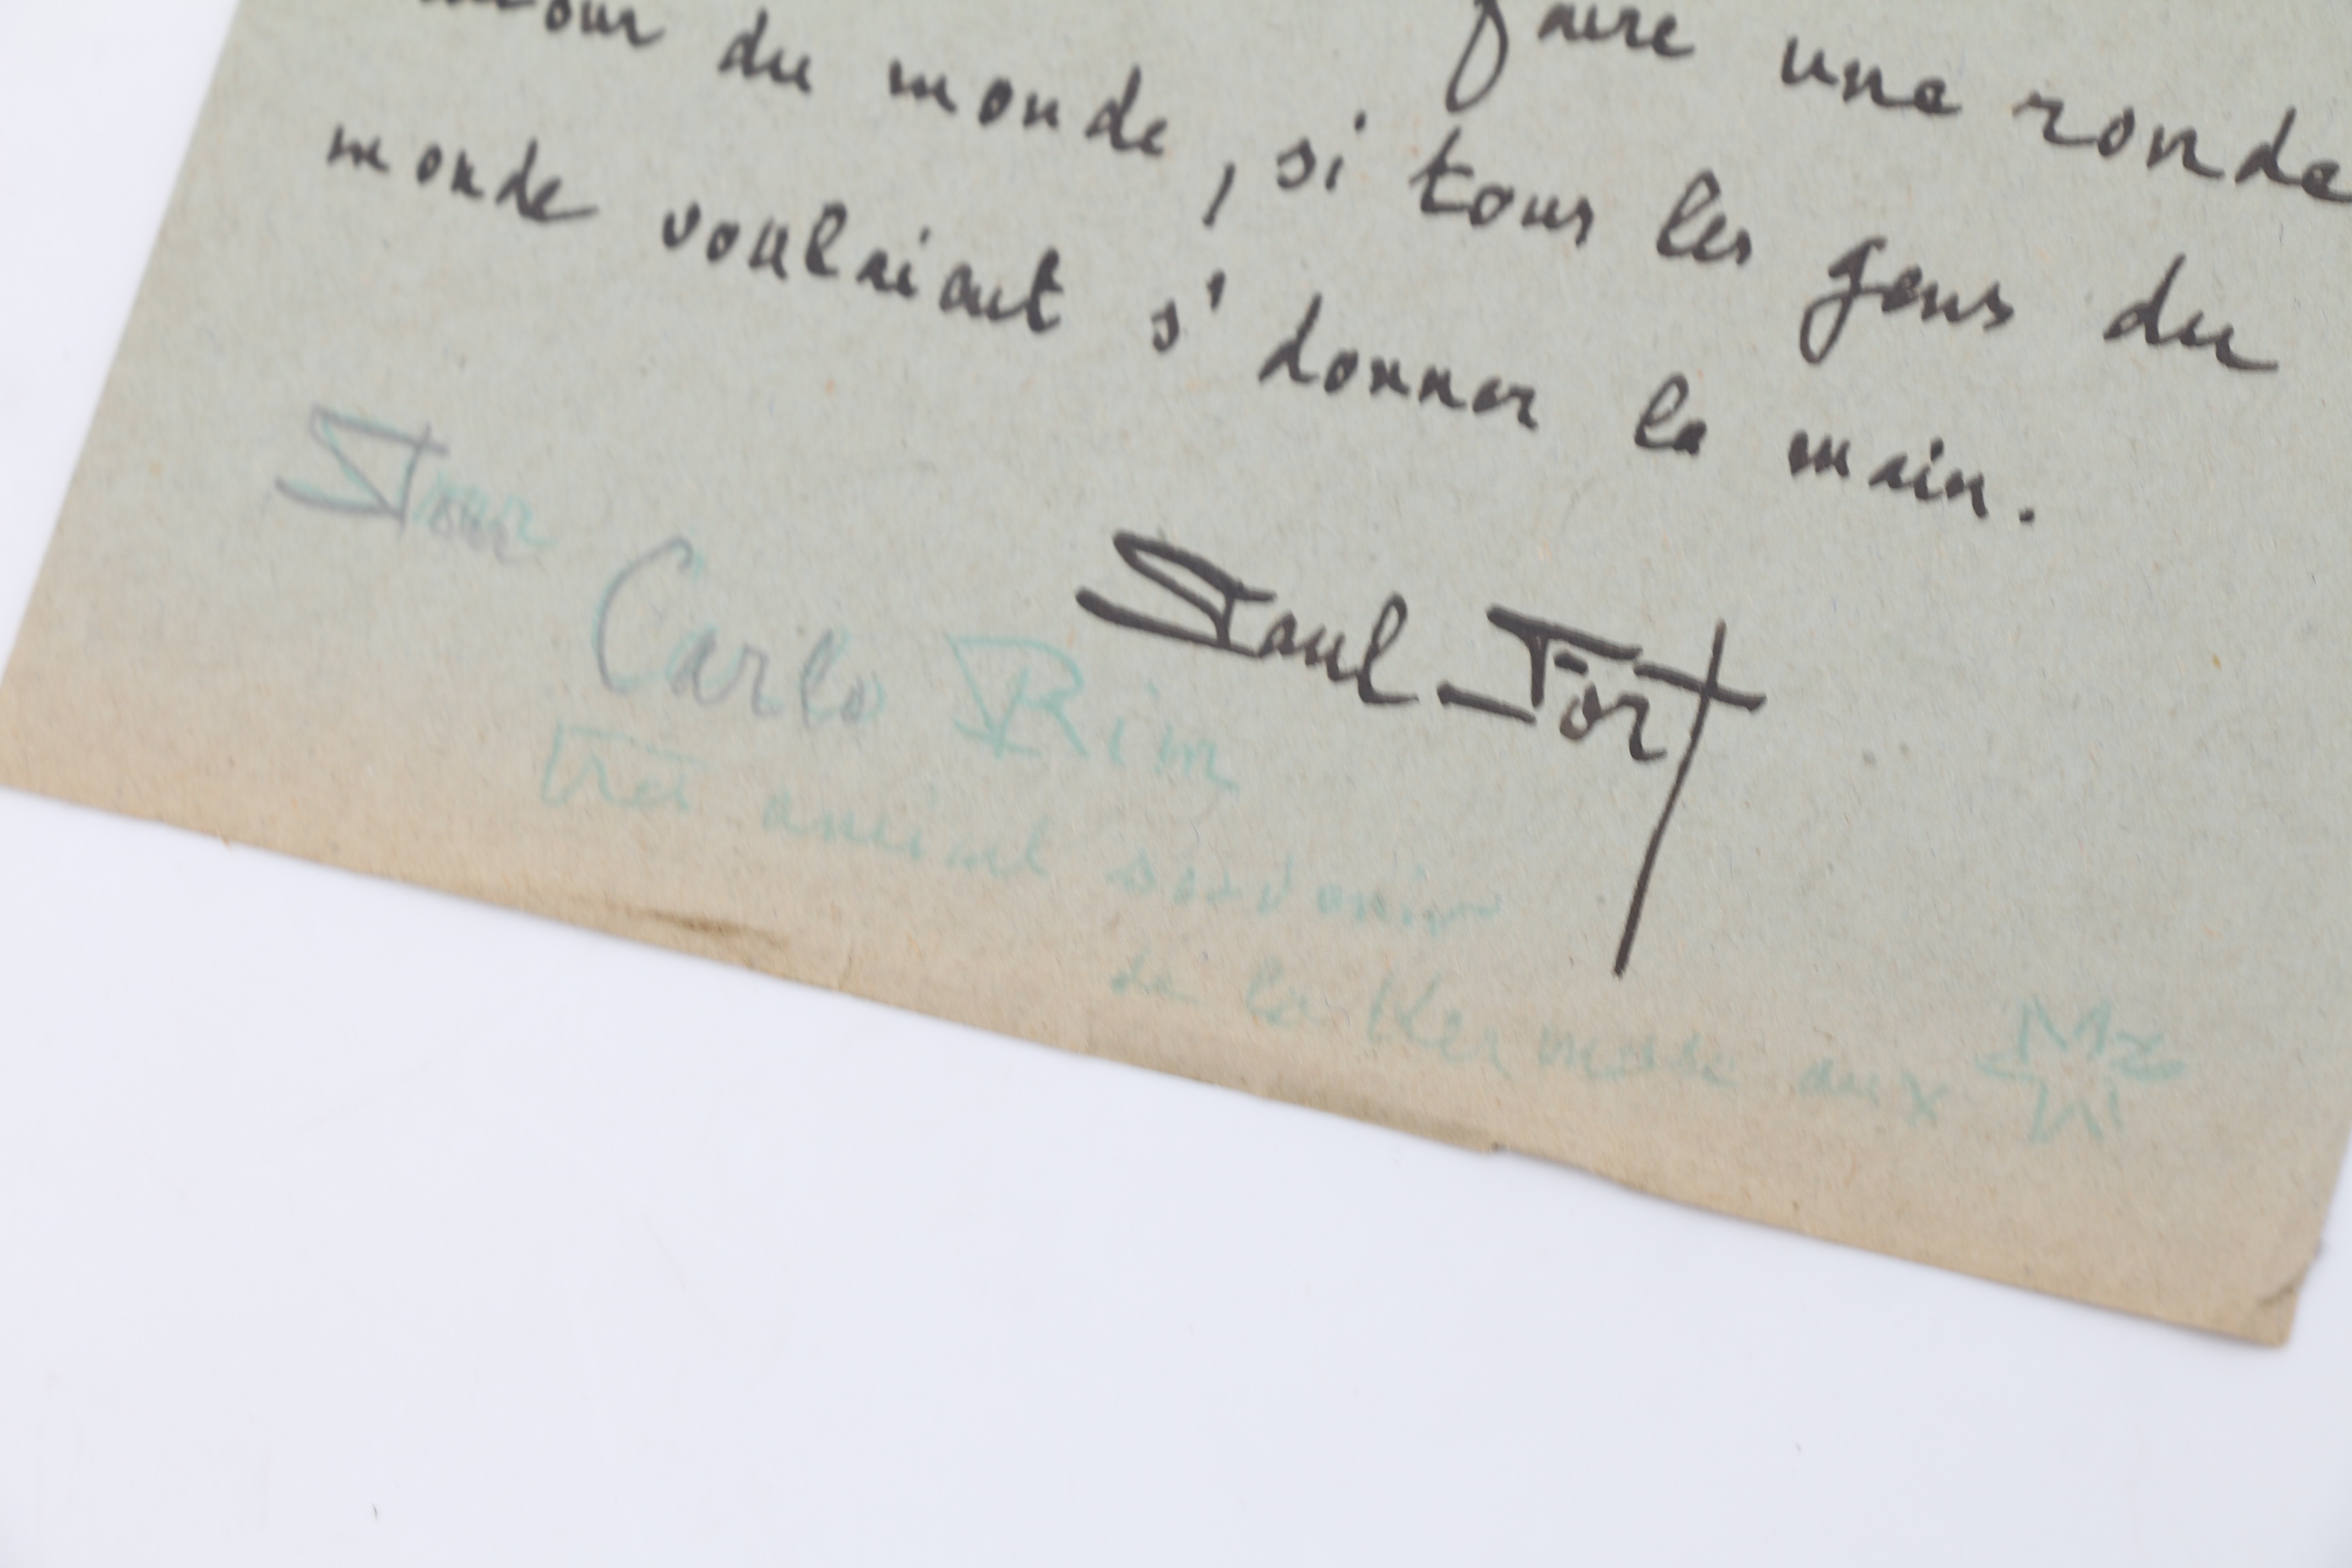 faire une ronde
autour du monde, si tous les gens du
monde voulaient s' donner la main.
Paul Fort
Pour
Carlo Rim
Très ancient souvenir
de la Kermesse aux